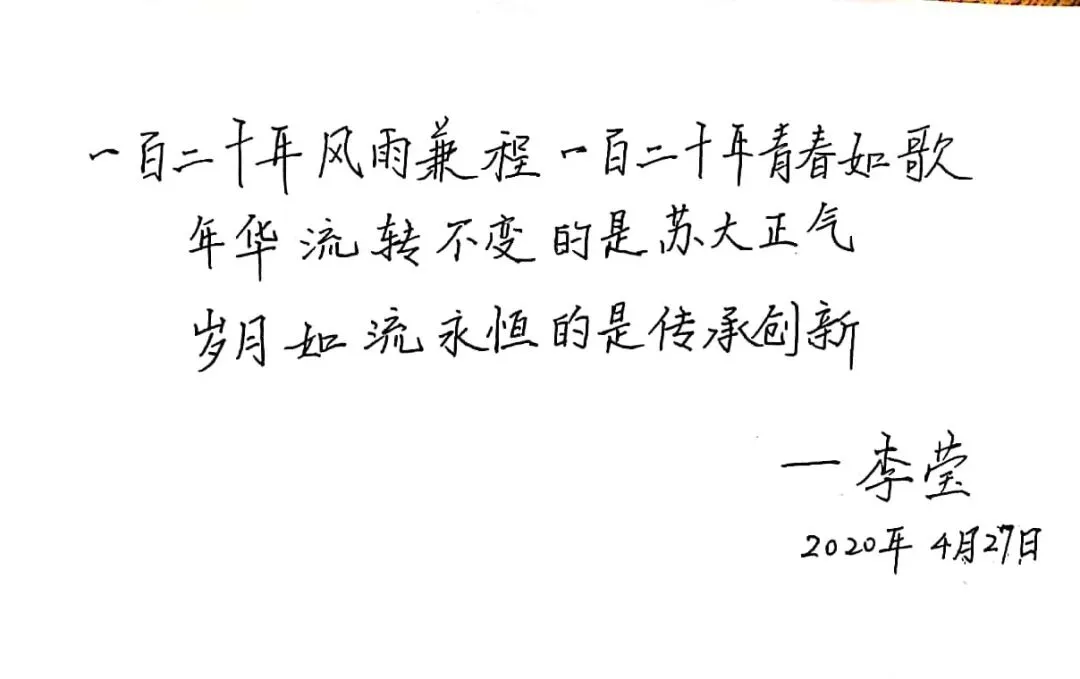 一百二十年风雨兼程 一百二十年青春如歌
年华流转不变的是苏大正气
岁月如流永恒的是传承创新
—李莹
2020年 4月27日